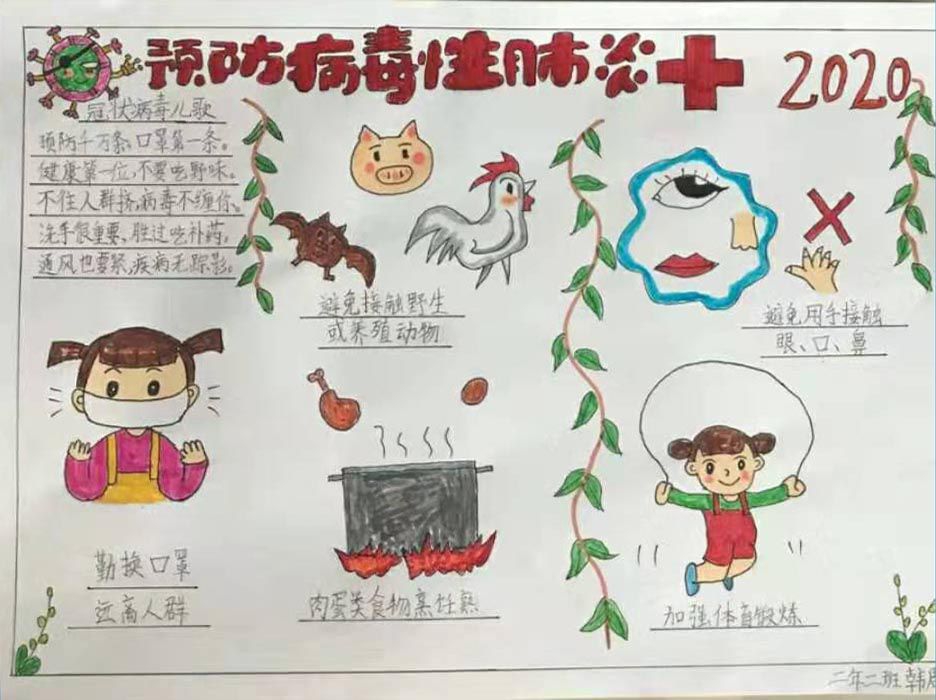 预防病毒性肺炎
2020
冠状病毒儿歌
预防千万条,口罩第一条。
健康第一位,不要吃野味。
不往人群挤,病毒不缠你。
洗手很重要,胜过吃补药,
通风也要紧,疾病无踪影。
避免接触野生
或养殖动物
避免用手接触
眼、口、鼻
勤换口罩
远离人群
肉蛋类食物烹饪熟
加强体育锻炼
二年二班韩